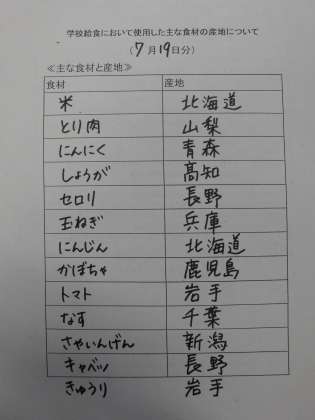 学校給食において使用した主な食材の産地について
(7月19日分)
≪主な食材と産地≫
食材 産地
米 北海道
とり肉 山梨
にんにく 青森
しょうが 高知
セロリ 長野
玉ねぎ 兵庫
にんじん 北海道
かぼちゃ 鹿児島
トマト 岩手
なす 千葉
さやいんげん 新潟
キャベツ 長野
きゅうり 岩手